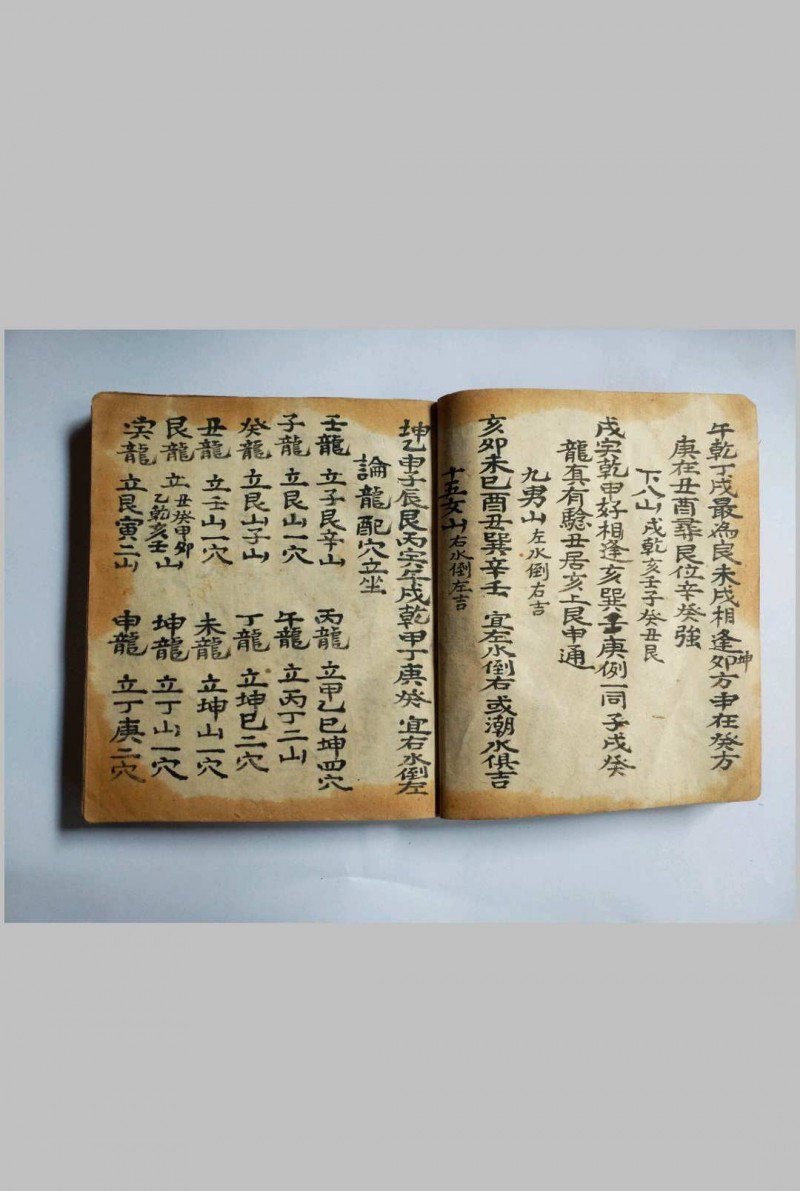 午乾丁戌最為良未戌相逢卯方申在癸方
坤
庚在丑酉尋艮位辛癸強
下八山 戌乾亥壬子癸丑艮
戌寅乾申好相逢亥巽壬庚例一同子戌癸
龍真有驗丑居亥上艮申通
九男山 左水倒右吉
亥卯未巳酉丑巽辛壬 宜左水倒右或潮水俱吉
十五女山 右水倒左吉
坤乙申子辰艮丙寅午戌乾甲丁庚癸 宜右水倒左
論龍配穴立坐
壬龍 立子艮辛山
丙龍 立甲乙巳坤四穴
子龍 立艮山一穴
午龍 立丙丁二山
癸龍 立艮山子山
丁龍 立坤巳二穴
丑龍 立壬山一穴
未龍 立坤山一穴
艮龍 立丑癸甲卯乙乾亥壬山
坤龍 立丁山一穴
寅龍 立艮寅二山
申龍 立丁庚二穴